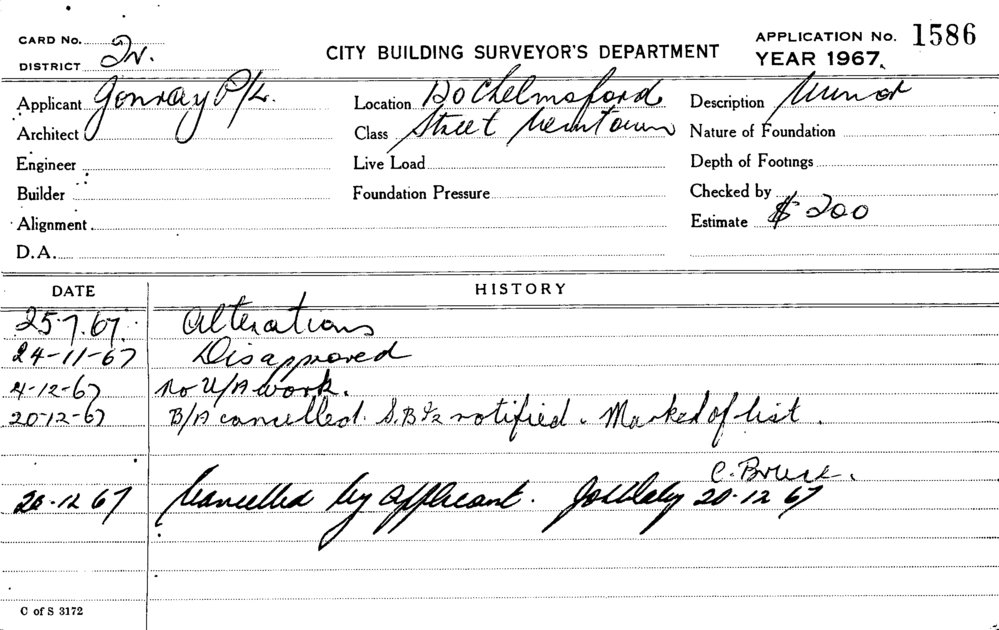 CARD No. APPLICATION No. 1586
DISTRICT CITY BUILDING SURVEYOR'S DEPARTMENT YEAR 1967.
Applicant Gonray P/L. Location Chelmsford Description Minor
Architect Class Street Newtown Nature of Foundation
Engineer Live Load Depth of Footings
Builder Foundation Pressure Checked by
Alignment Estimate $200
D.A.
DATE HISTORY
25.7.67. Alterations
24-11-67 Disapproved
4-12-67 No U/A work.
20-12-67 B/A cancelled. notified. Marked of list.
20-12 67 Cancelled by applicant. 20.12 67
C of S 3172